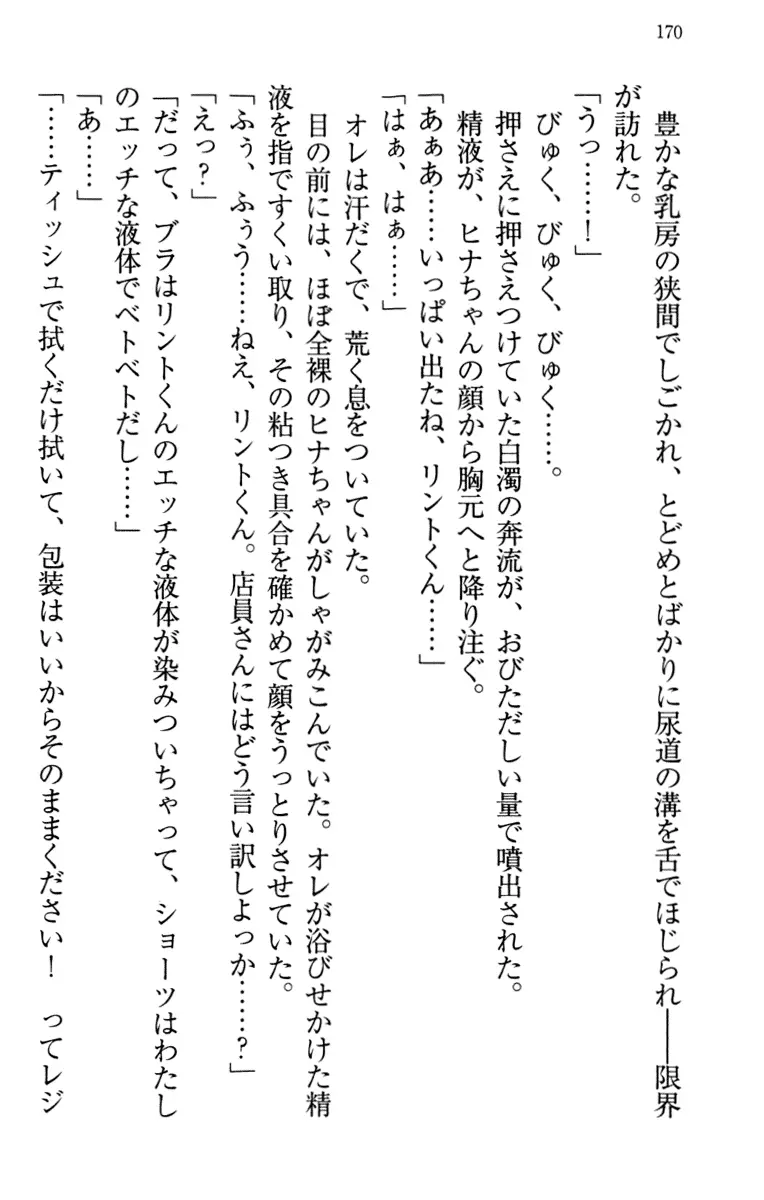 170
豊かな乳房の狭間でしごかれ、とどめとばかりに尿道の溝を舌でほじられ――限界
が訪れた。
「うっ……！」
びゅく、びゅく、びゅく……。
押さえに押さえつけていた白濁の奔流が、おびただしい量で噴出された。
精液が、ヒナちゃんの顔から胸元へと降り注ぐ。
「あぁあ……いっぱい出たね、リントくん……」
「はぁ、はぁ……」
オレは汗だくで、荒く息をついていた。
目の前には、ほぼ全裸のヒナちゃんがしゃがみこんでいた。オレが浴びせかけた精
液を指ですくい取り、その粘つき具合を確かめて顔をうっとりさせていた。
「ふぅ、ふぅう……ねえ、リントくん。店員さんにはどう言い訳しよっか……？」
「えっ？」
「だって、ブラはリントくんのエッチな液体が染みついちゃって、ショーツはわたし
のエッチな液体でベトベトだし……」
「あ……」
「……ティッシュで拭くだけ拭いて、包装はいいからそのままください！　ってレジ